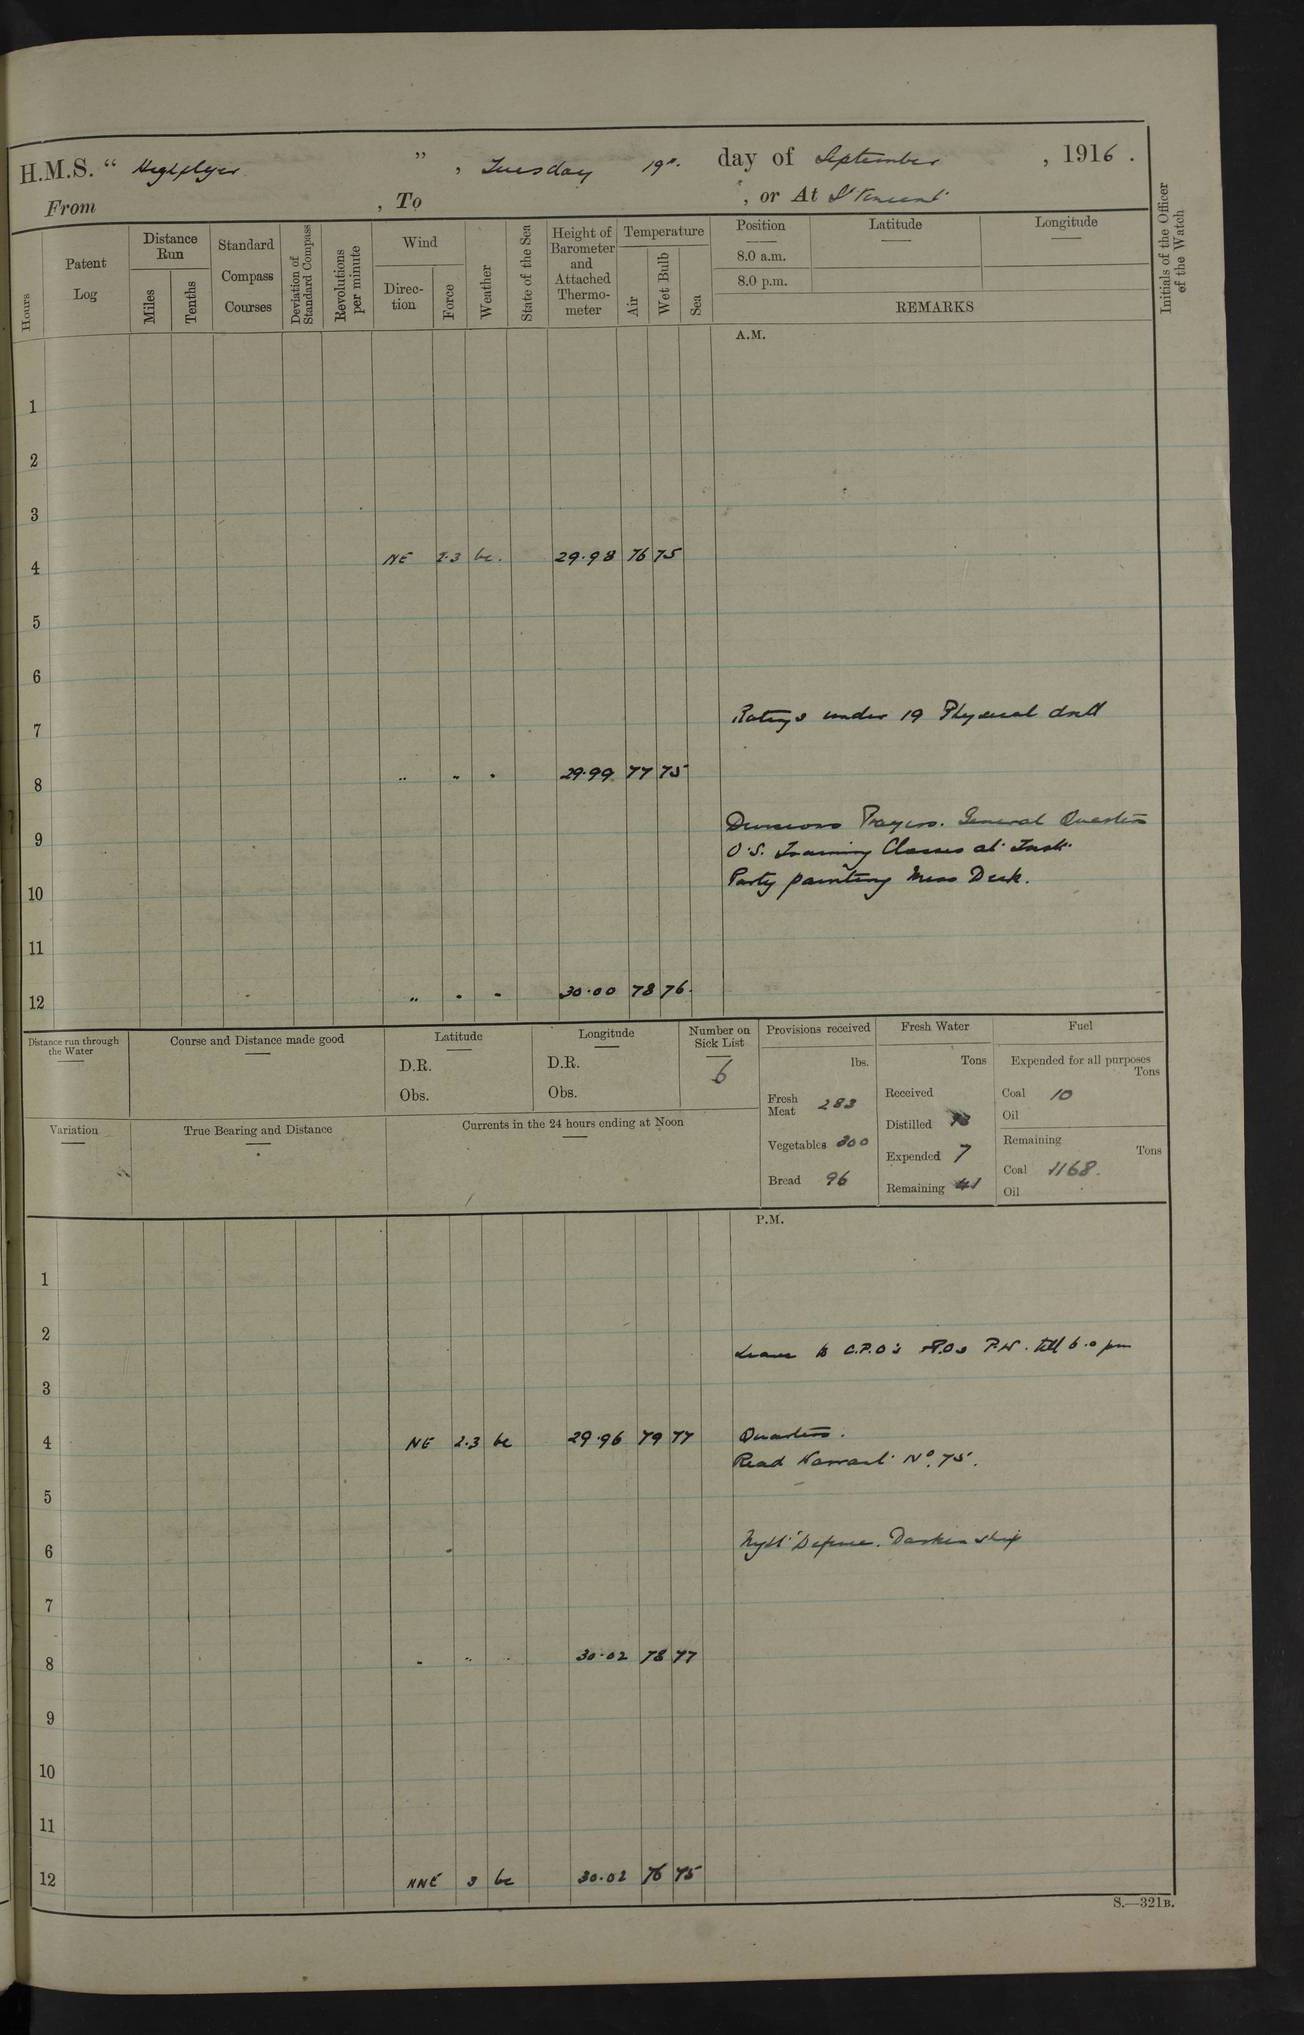 H.M.S. " Highflyer " , Tuesday 19th day of September , 1916 .
From , To , or At St Vincent
Hours
Patent Log
Distance Run
Miles
Tenths
Standard Compass Courses
Deviation of Standard Compass
Revolutions per minute
Wind
Direc-tion
Force
Weather
State of the Sea
Height of Barometer and Attached Thermo-meter
Temperature
Air
Wet Bulb
Sea
Position
Latitude
Longitude
8.0 a.m.
8.0 p.m.
REMARKS
Initials of the Officer of the Watch
A.M.
1
2
3
4 NE 2.3 bc. 29.98 76 75
5
6
7 Ratings under 19 Physical drill
8 " " " 29.99 77 75
9 Divisions Prayers. General Quarters
O.S. Training Classes at Inst.
10 Party painting Mess Deck.
11
12 " " " 30.00 78 76
Distance run through the Water
Course and Distance made good
Latitude
D.R.
Obs.
Longitude
D.R.
Obs.
Number on Sick List
6
Provisions received
lbs.
Fresh Meat 283
Vegetables 300
Bread 96
Fresh Water
Tons
Received
Distilled
Expended 7
Remaining 41
Fuel
Expended for all purposes
Tons
Coal 10
Oil
Remaining
Tons
Coal 1168.
Oil
Variation
True Bearing and Distance
Currents in the 24 hours ending at Noon
P.M.
1
2 Leave to C.P.O's P.Os P.W. till 6.0 pm
3
4 NE 2.3 bc 29.96 79 77 Quarters.
Read Warrant No. 75.
5
6 Night Defence. Darken ship
7
8 " " " 30.02 78 77
9
10
11
12 NNE 3 bc 30.02 76 75
S.—321B.